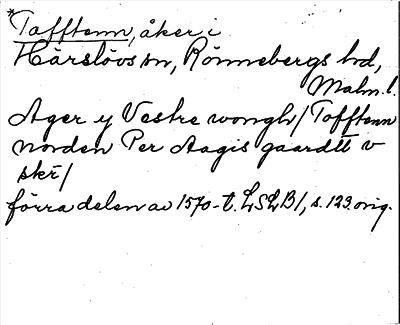 *Tofftenn, åker i
Hårslövs sn, Rönnebergs hd,
Malm. l.
Ager y Vestre wongh / Tofftenn
norden Per Aagis gaardtt v
skr /
förra delen av 1570-t. LSLB 1, s. 123 orig.